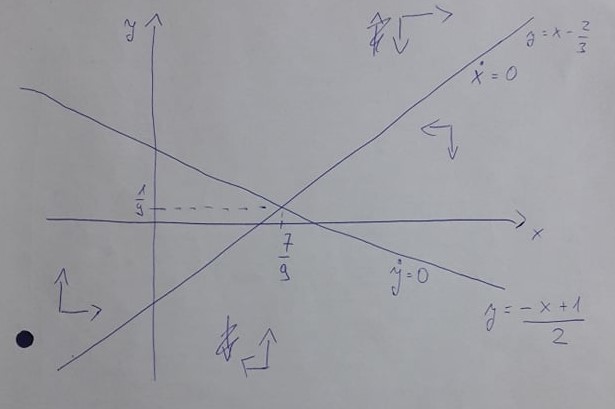 y
y = x - 2/3
ẋ = 0
1/9
x
7/9
ẏ = 0
y = (-x + 1)/2